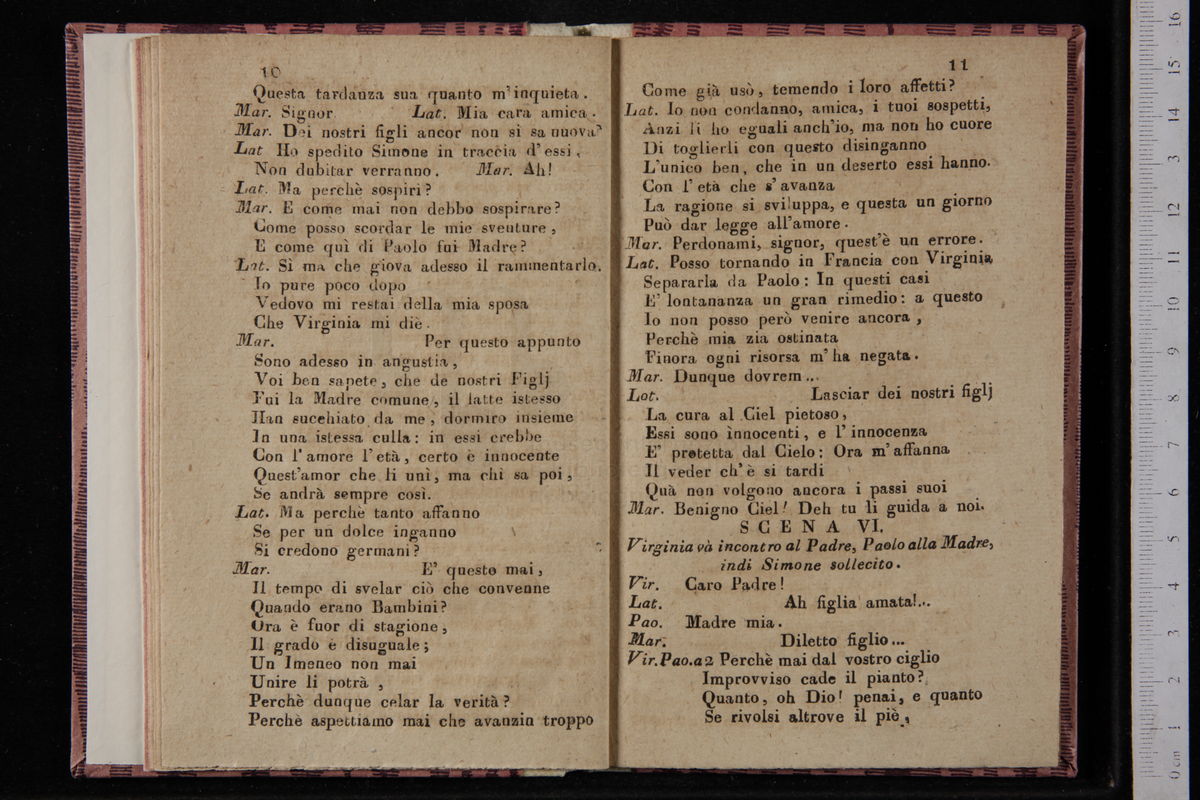 10
Questa tardanza sua quanto m'inquieta.
Mar. Signor Lat. Mia cara amica.
Mar. Dei nostri figli ancor non si sa nuova?
Lat Ho spedito Simone in traccia d'essi,
Non dubitar verranno. Mar. Ah!
Lat. Ma perchè sospiri?
Mar. E come mai non debbo sospirare?
Come posso scordar le mie sventure,
E come quì di Paolo fui Madre?
Lat. Sì ma che giova adesso il rammentarlo.
Io pure poco dopo
Vedovo mi restai della mia sposa
Che Virginia mi diè.
Mar. Per questo appunto
Sono adesso in angustia,
Voi ben sapete, che de nostri Figlj
Fui la Madre comune, il latte istesso
Han sucehiato da me, dormiro insieme
In una istessa culla: in essi crebbe
Con l'amore l'età, certo è innocente
Quest'amor che li unì, ma chi sa poi,
Se andrà sempre così.
Lat. Ma perchè tanto affanno
Se per un dolce inganno
Si credono germani?
Mar. E' questo mai,
Il tempo di svelar ciò che convenne
Quando erano Bambini?
Ora è fuor di stagione,
Il grado è disuguale;
Un Imeneo non mai
Unire li potrà,
Perchè dunque celar la verità?
Perchè aspettiamo mai che avanzin troppo
11
Come già usò, temendo i loro affetti?
Lat. Io non condanno, amica, i tuoi sospetti,
Anzi li ho eguali anch'io, ma non ho cuore
Di toglierli con questo disinganno
L'unico ben, che in un deserto essi hanno.
Con l'età che s'avanza
La ragione si sviluppa, e questa un giorno
Può dar legge all'amore.
Mar. Perdonami, signor, quest'è un errore.
Lat. Posso tornando in Francia con Virginia
Separarla da Paolo: In questi casi
E' lontananza un gran rimedio: a questo
Io non posso però venire ancora,
Perchè mia zia ostinata
Finora ogni risorsa m'ha negata.
Mar. Dunque dovrem...
Lot. Lasciar dei nostri figlj
La cura al Ciel pietoso,
Essi sono ìnnocenti, e l'innocenza
E' protetta dal Cielo: Ora m'affanna
Il veder ch'è si tardi
Quà non volgono ancora i passi suoi
Mar. Benigno Ciel! Deh tu li guida a noi.
SCENA VI.
Virginia và incontro al Padre, Paolo alla Madre,
indi Simone sollecito.
Vir. Caro Padre!
Lat. Ah figlia amata!...
Pao. Madre mia.
Mar. Diletto figlio...
Vir. Pao. a 2 Perchè mai dal vostro ciglio
Improvviso cade il pianto?
Quanto, oh Dio! penai, e quanto
Se rivolsi altrove il piè,
0 cm 1 2 3 4 5 6 7 8 9 10 11 12 13 14 15 16